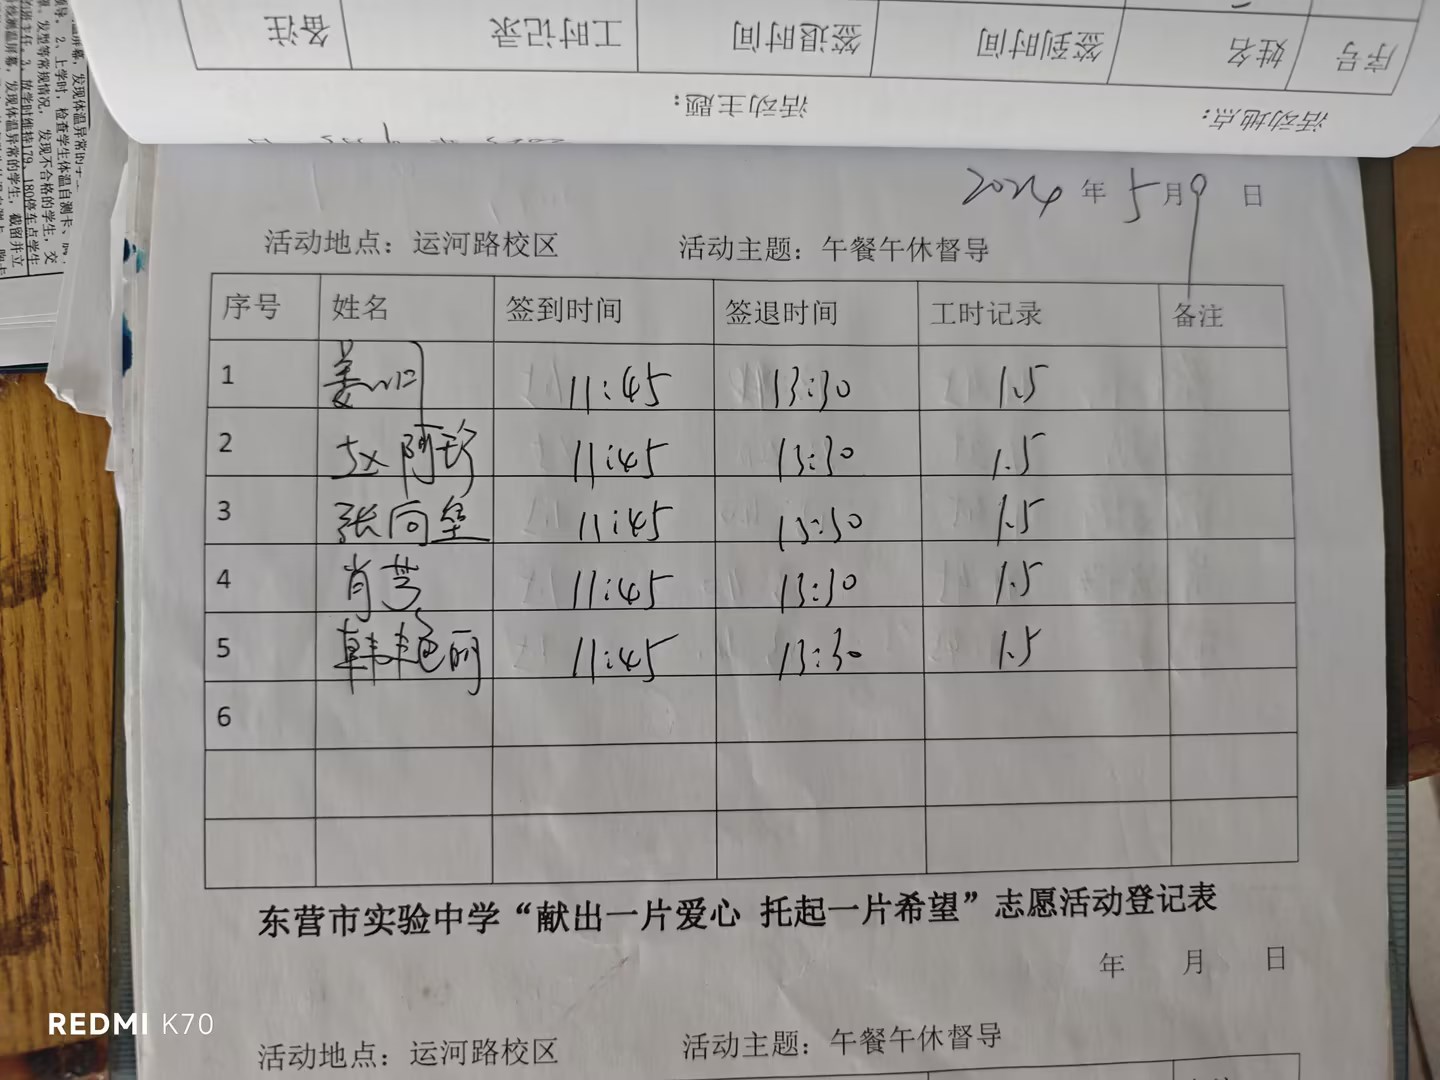 备注 工时记录 签退时间 签到时间 姓名 序号
活动主题： 活动地点：
2024 年 5 月 9 日
活动地点：运河路校区 活动主题：午餐午休督导
序号 姓名 签到时间 签退时间 工时记录 备注
1 11:45 13:30 1.5
2 赵阿珍 11:45 13:30 1.5
3 张向垒 11:45 13:30 1.5
4 肖芳 11:45 13:30 1.5
5 韩艳丽 11:45 13:30 1.5
6
东营市实验中学“献出一片爱心 托起一片希望”志愿活动登记表
年 月 日
活动地点：运河路校区 活动主题：午餐午休督导
REDMI K70